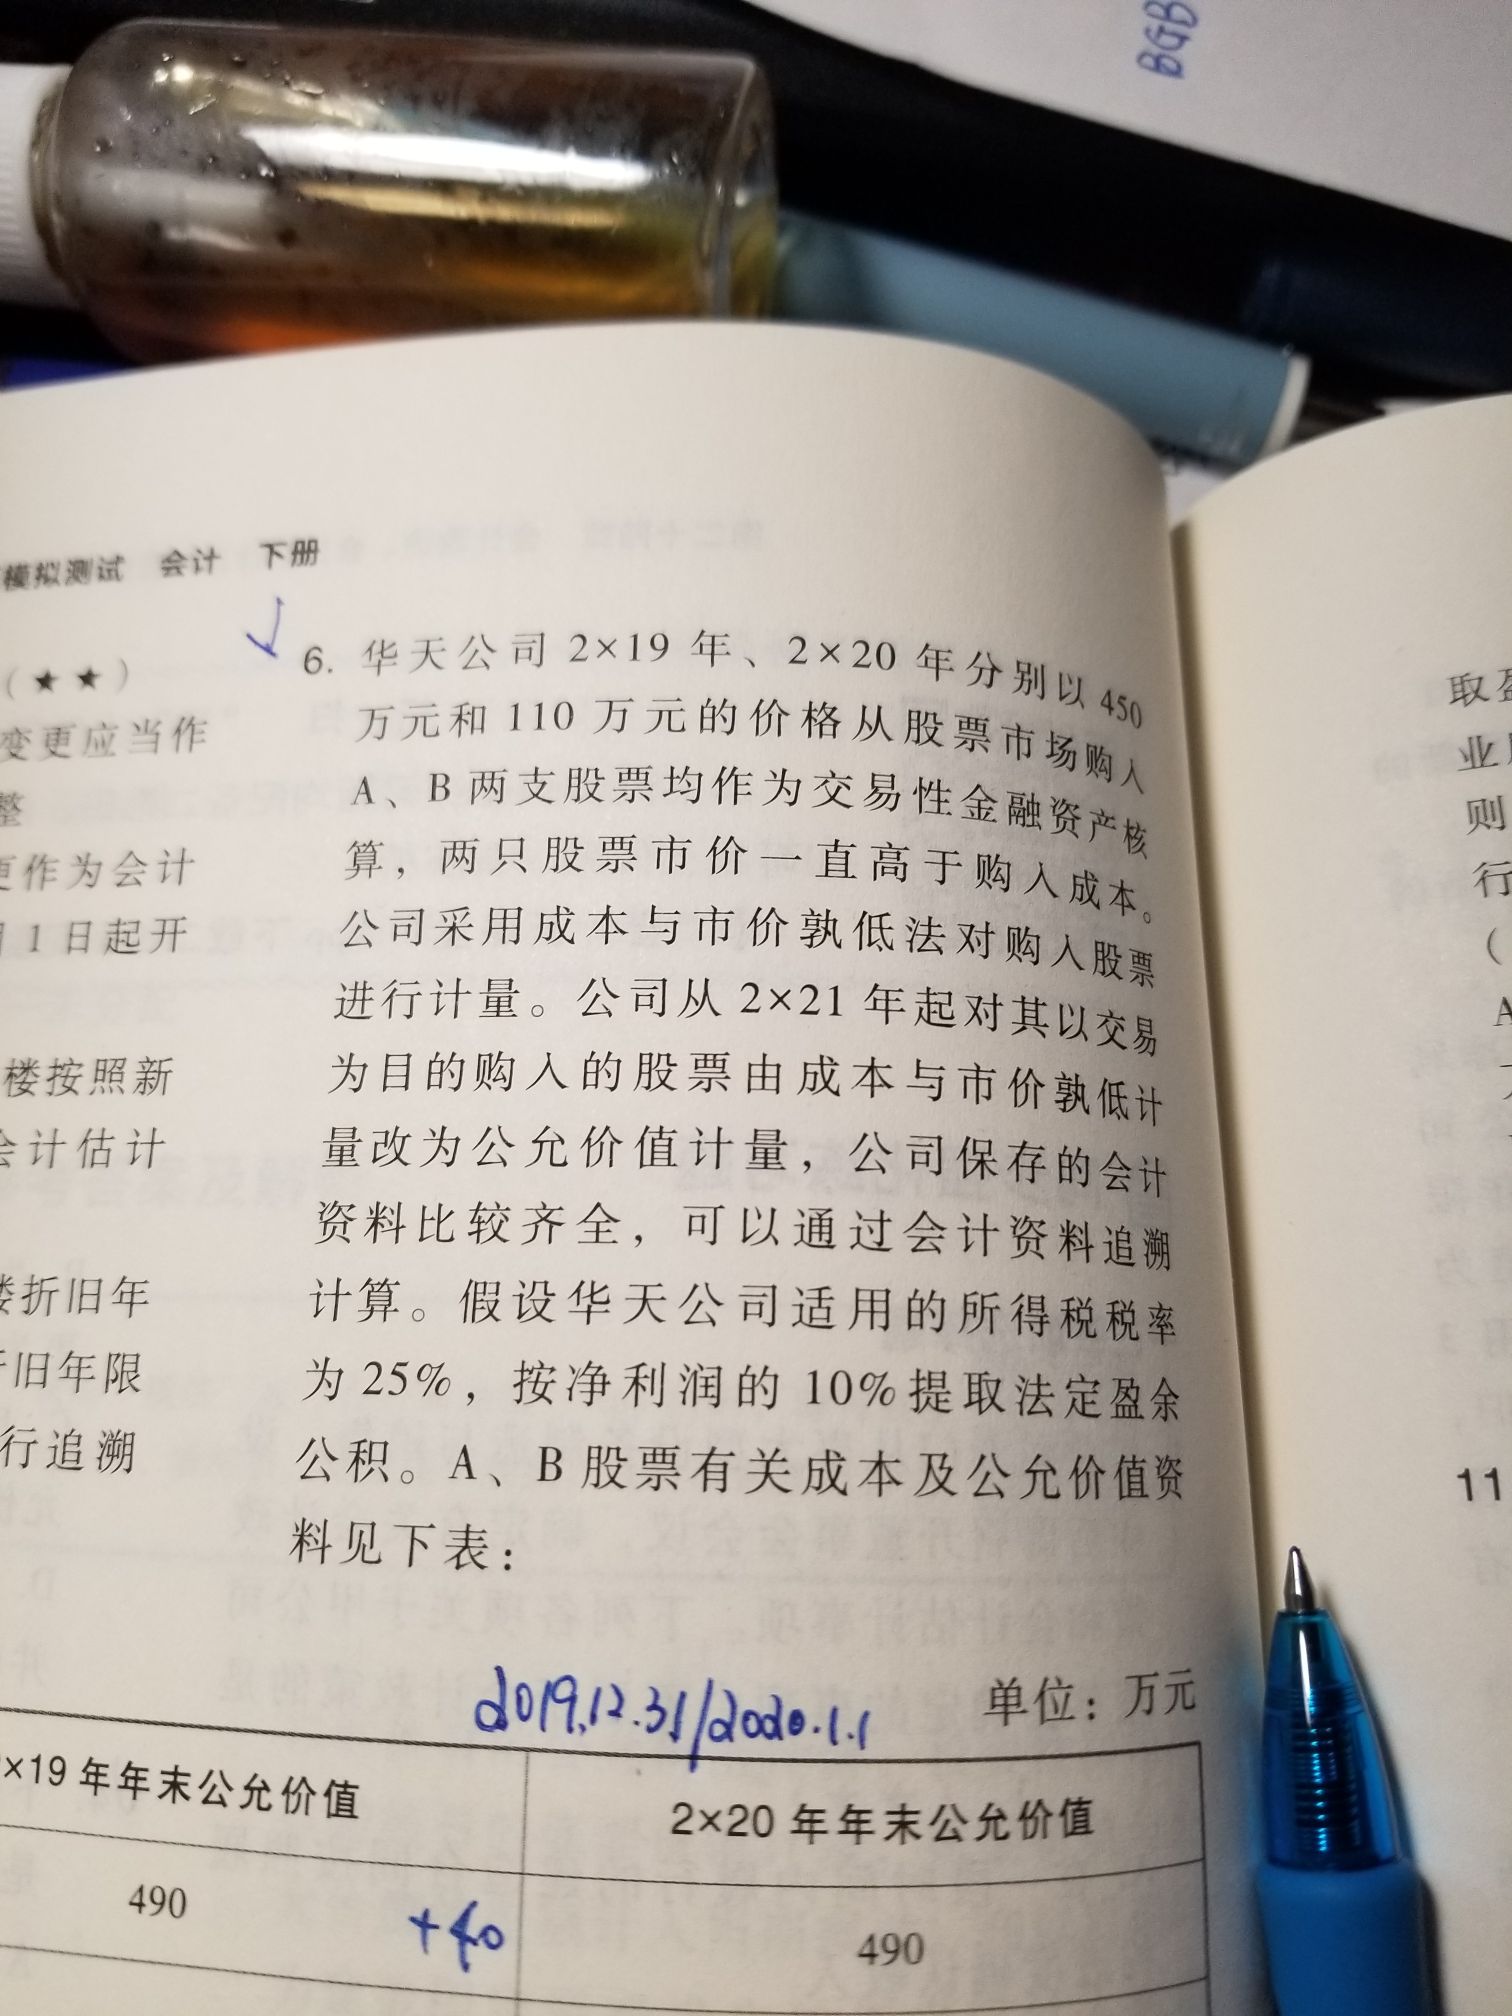 BGB
模拟测试 会计 下册
(★★)
变更应当作
整
更作为会计
月1日起开
楼按照新
会计估计
楼折旧年
旧年限
行追溯
6. 华天公司 2×19 年、2×20 年分别以 450
万元和 110 万元的价格从股票市场购入
A、B 两支股票均作为交易性金融资产核
算，两只股票市价一直高于购入成本。
公司采用成本与市价孰低法对购入股票
进行计量。公司从 2×21 年起对其以交易
为目的购入的股票由成本与市价孰低计
量改为公允价值计量，公司保存的会计
资料比较齐全，可以通过会计资料追溯
计算。假设华天公司适用的所得税税率
为 25%，按净利润的 10%提取法定盈余
公积。A、B 股票有关成本及公允价值资
料见下表：
2019.12.31/2020.1.1
单位：万元
×19 年年末公允价值
2×20 年年末公允价值
490
+40
490
取
业
则
行
(
A
11